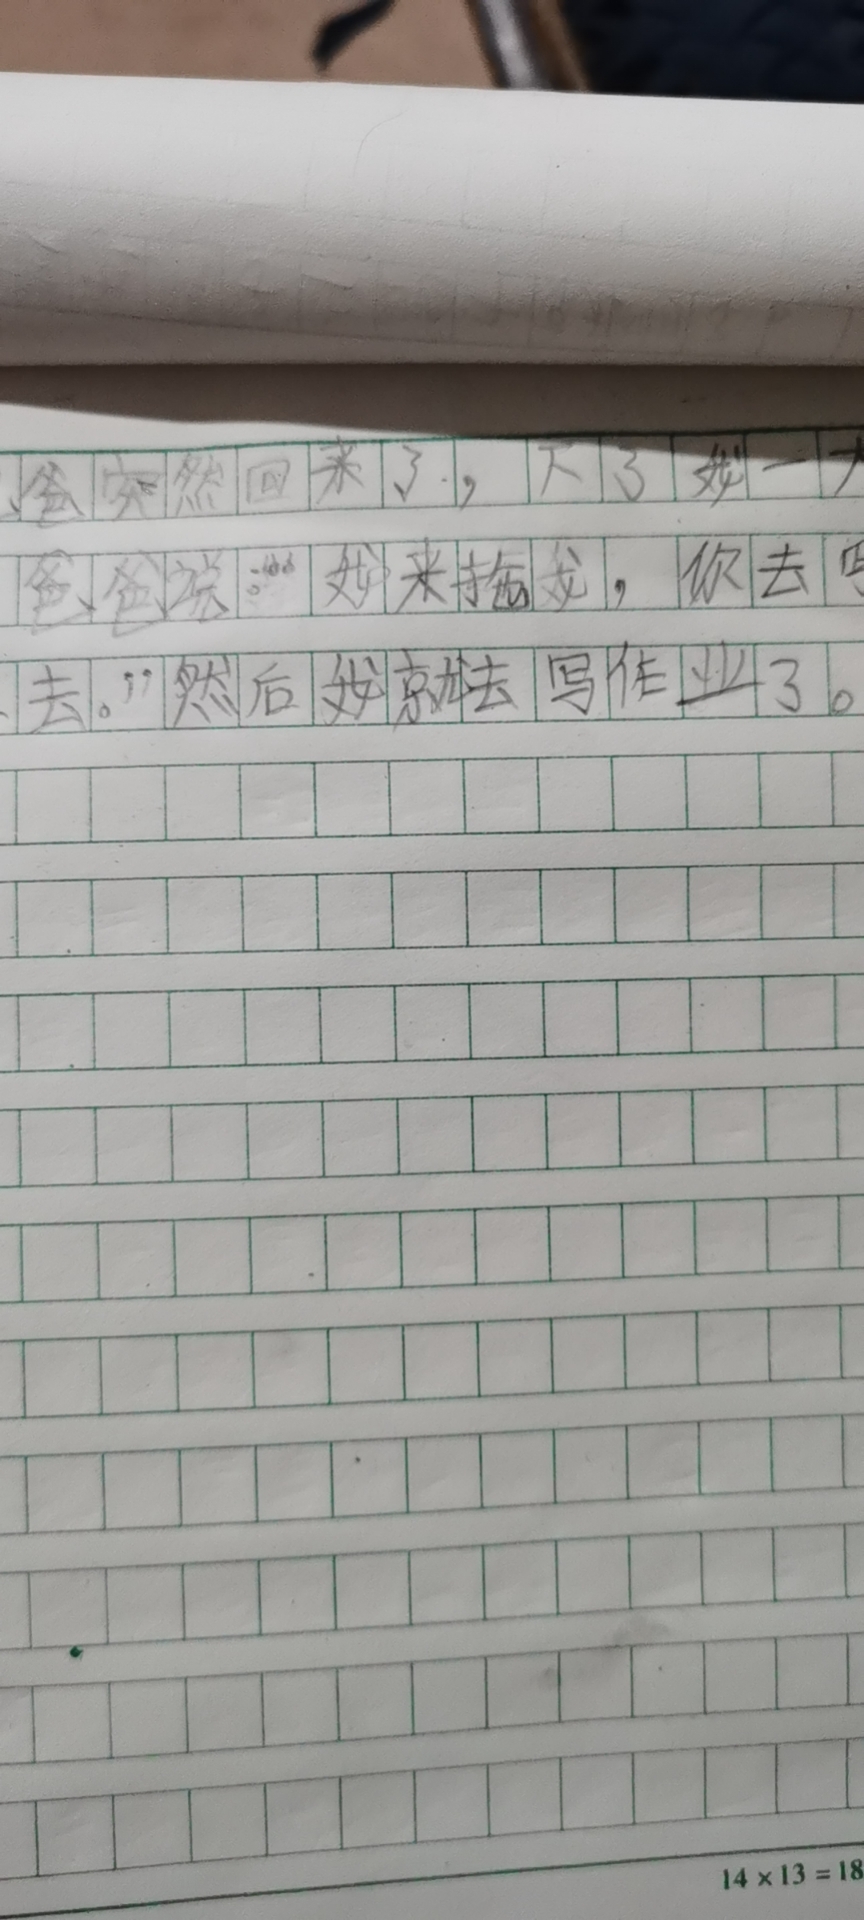 爸突然回来了，下了我一大
爸爸说：“我来拖我，你去写
去。”然后我就去写作业了。
14×13=18